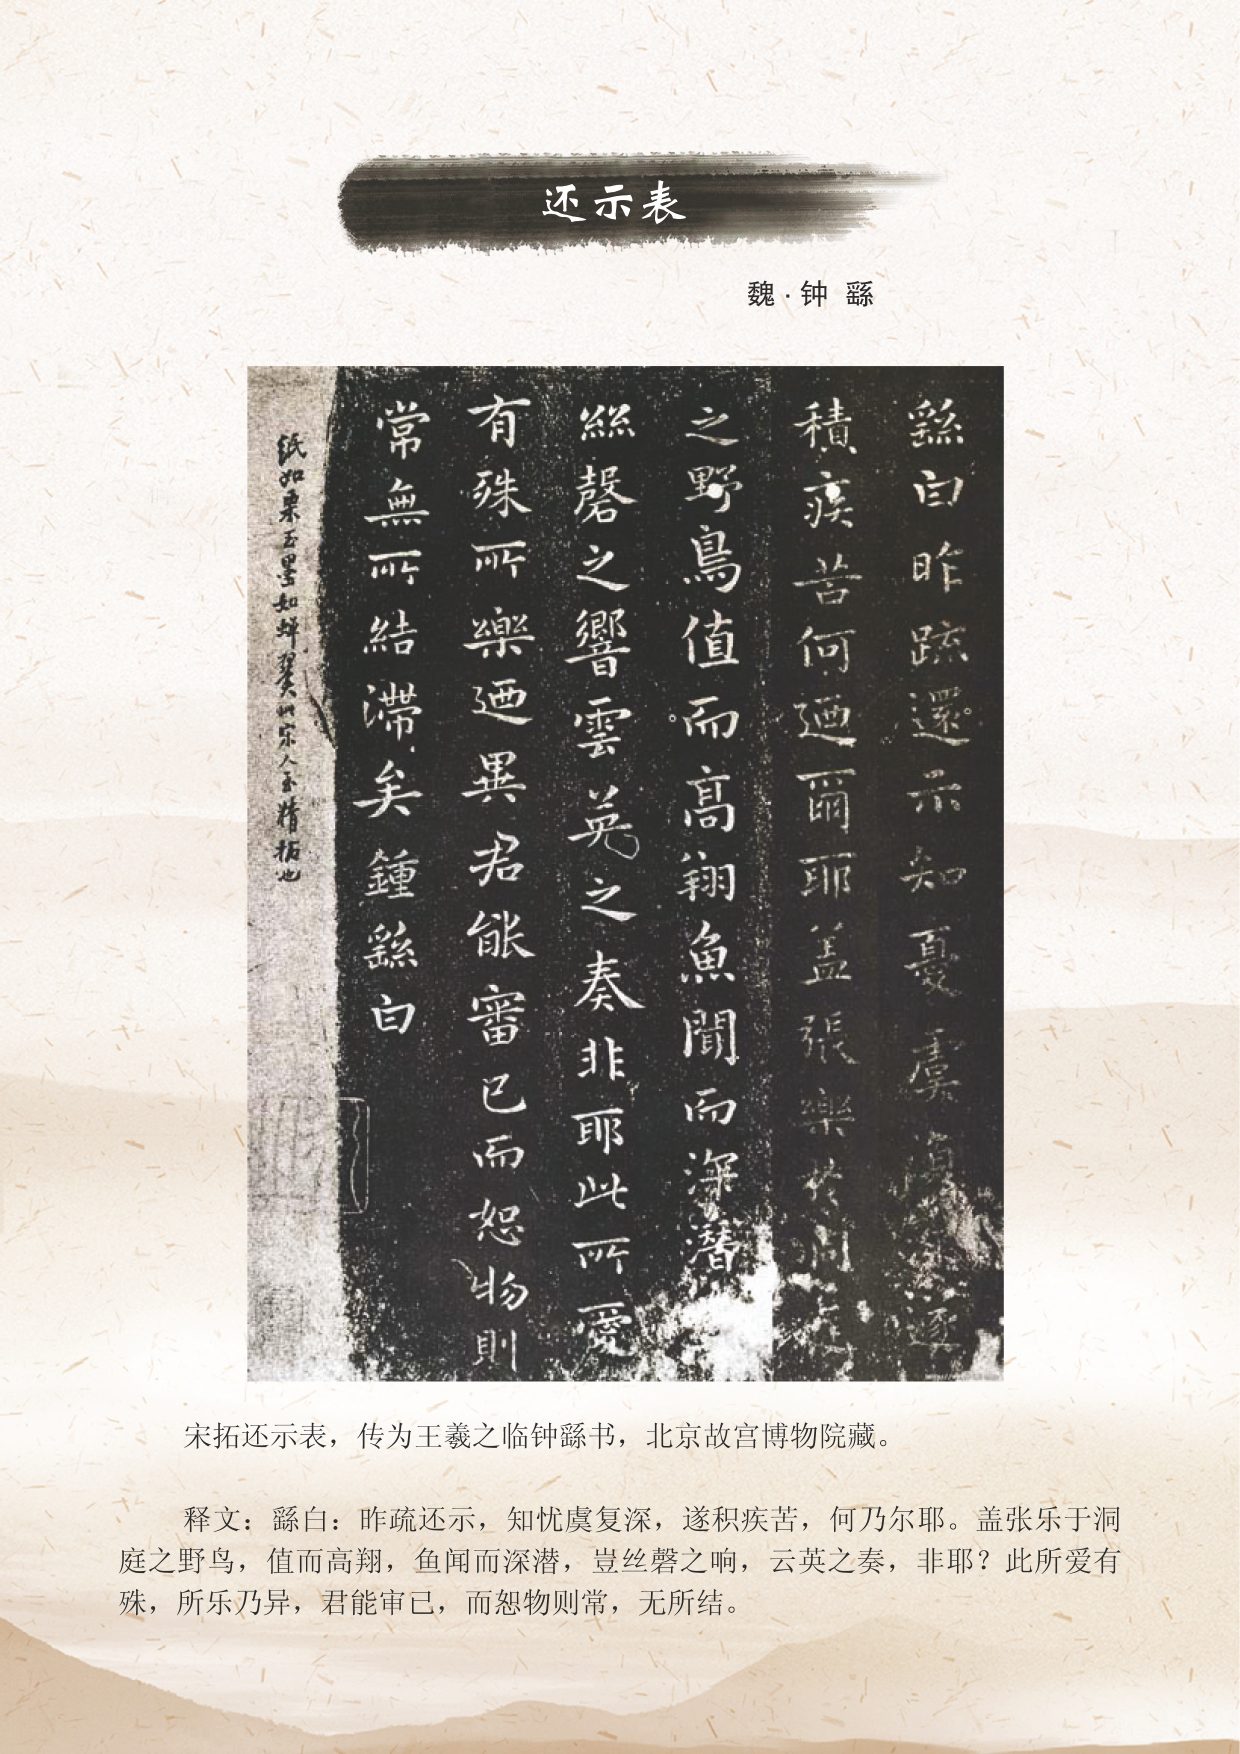 还示表
魏·钟 繇
繇白昨疏還示知憂虞復深遂
積疾苦何迺爾耶盖張樂於洞庭
之野鳥值而高翔魚聞而深潛
絲磬之響雲英之奏非耶此所愛
有殊所樂迺異君能審已而恕物則
常無所結滯矣鍾繇白
纸如栗玉墨如蝉翼此宋人至精拓也
宋拓还示表，传为王羲之临钟繇书，北京故宫博物院藏。
释文：繇白：昨疏还示，知忧虞复深，遂积疾苦，何乃尔耶。盖张乐于洞
庭之野鸟，值而高翔，鱼闻而深潜，岂丝磬之响，云英之奏，非耶？此所爱有
殊，所乐乃异，君能审已，而恕物则常，无所结。